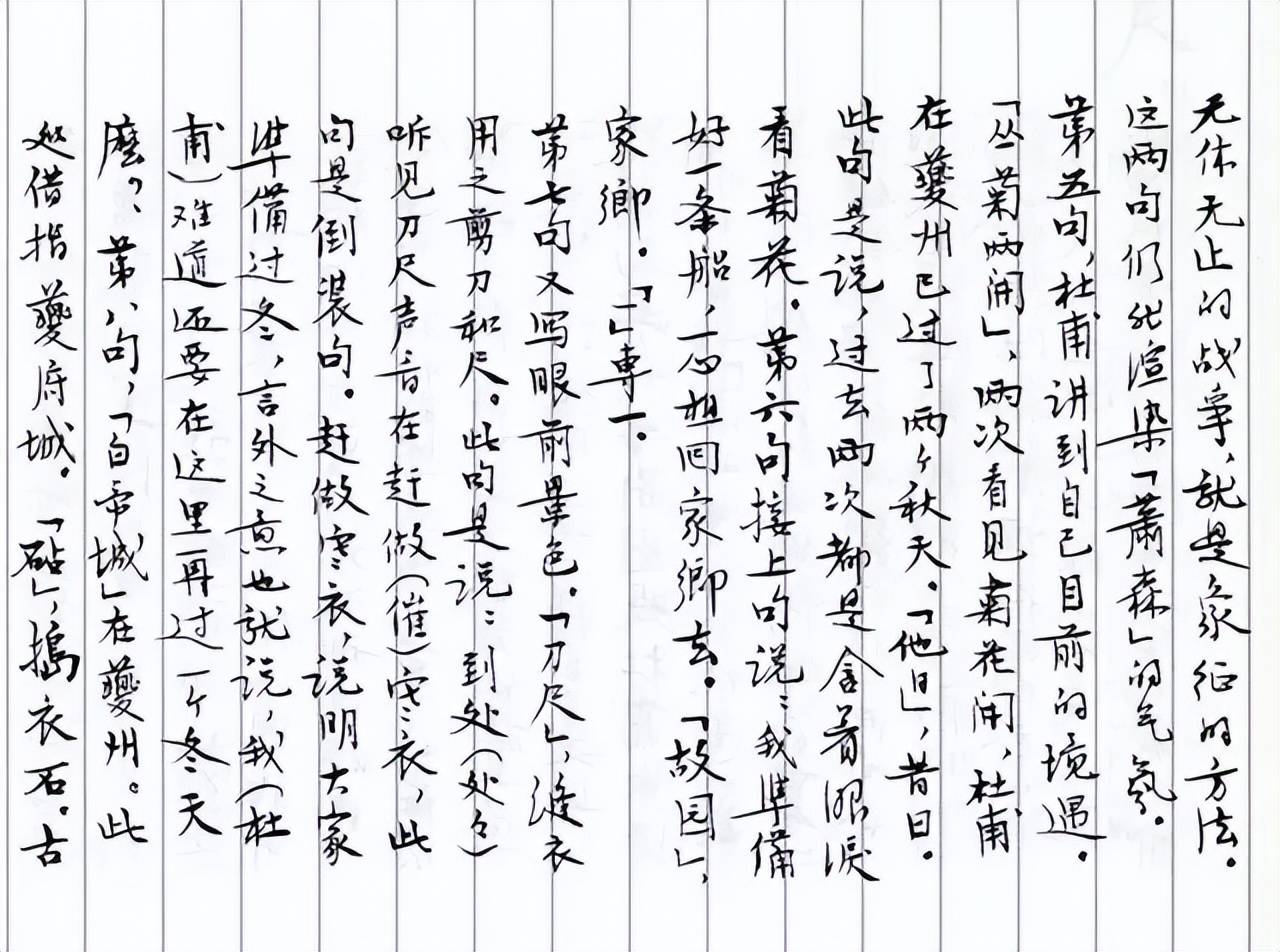 无休无止的战争，就是象征的方法。
这两句仍然渲染「蕭森」的气氛。
第五句，杜甫讲到自己目前的境遇。
「丛菊两開」，两次看见菊花開，杜甫
在夔州已过了两个秋天。「他日」，昔日。
此句是说，过去两次都是含着眼淚
看菊花。第六句接上句说：我準備
好一条船，一心想回家鄉去。「故园」，
家鄉。「一」專一。
第七句又写眼前景色。「刀尺」，縫衣
用之剪刀和尺。此句是说：到处（处々）
听见刀尺声音在赶做（催）寒衣，此
句是倒装句。赶做寒衣，说明大家
準備过冬，言外之意也就说，我（杜
甫）难道还要在这里再过一个冬天
麽？、第八句，「白帝城」在夔州。此
处借指夔府城。「砧」，搗衣石。古